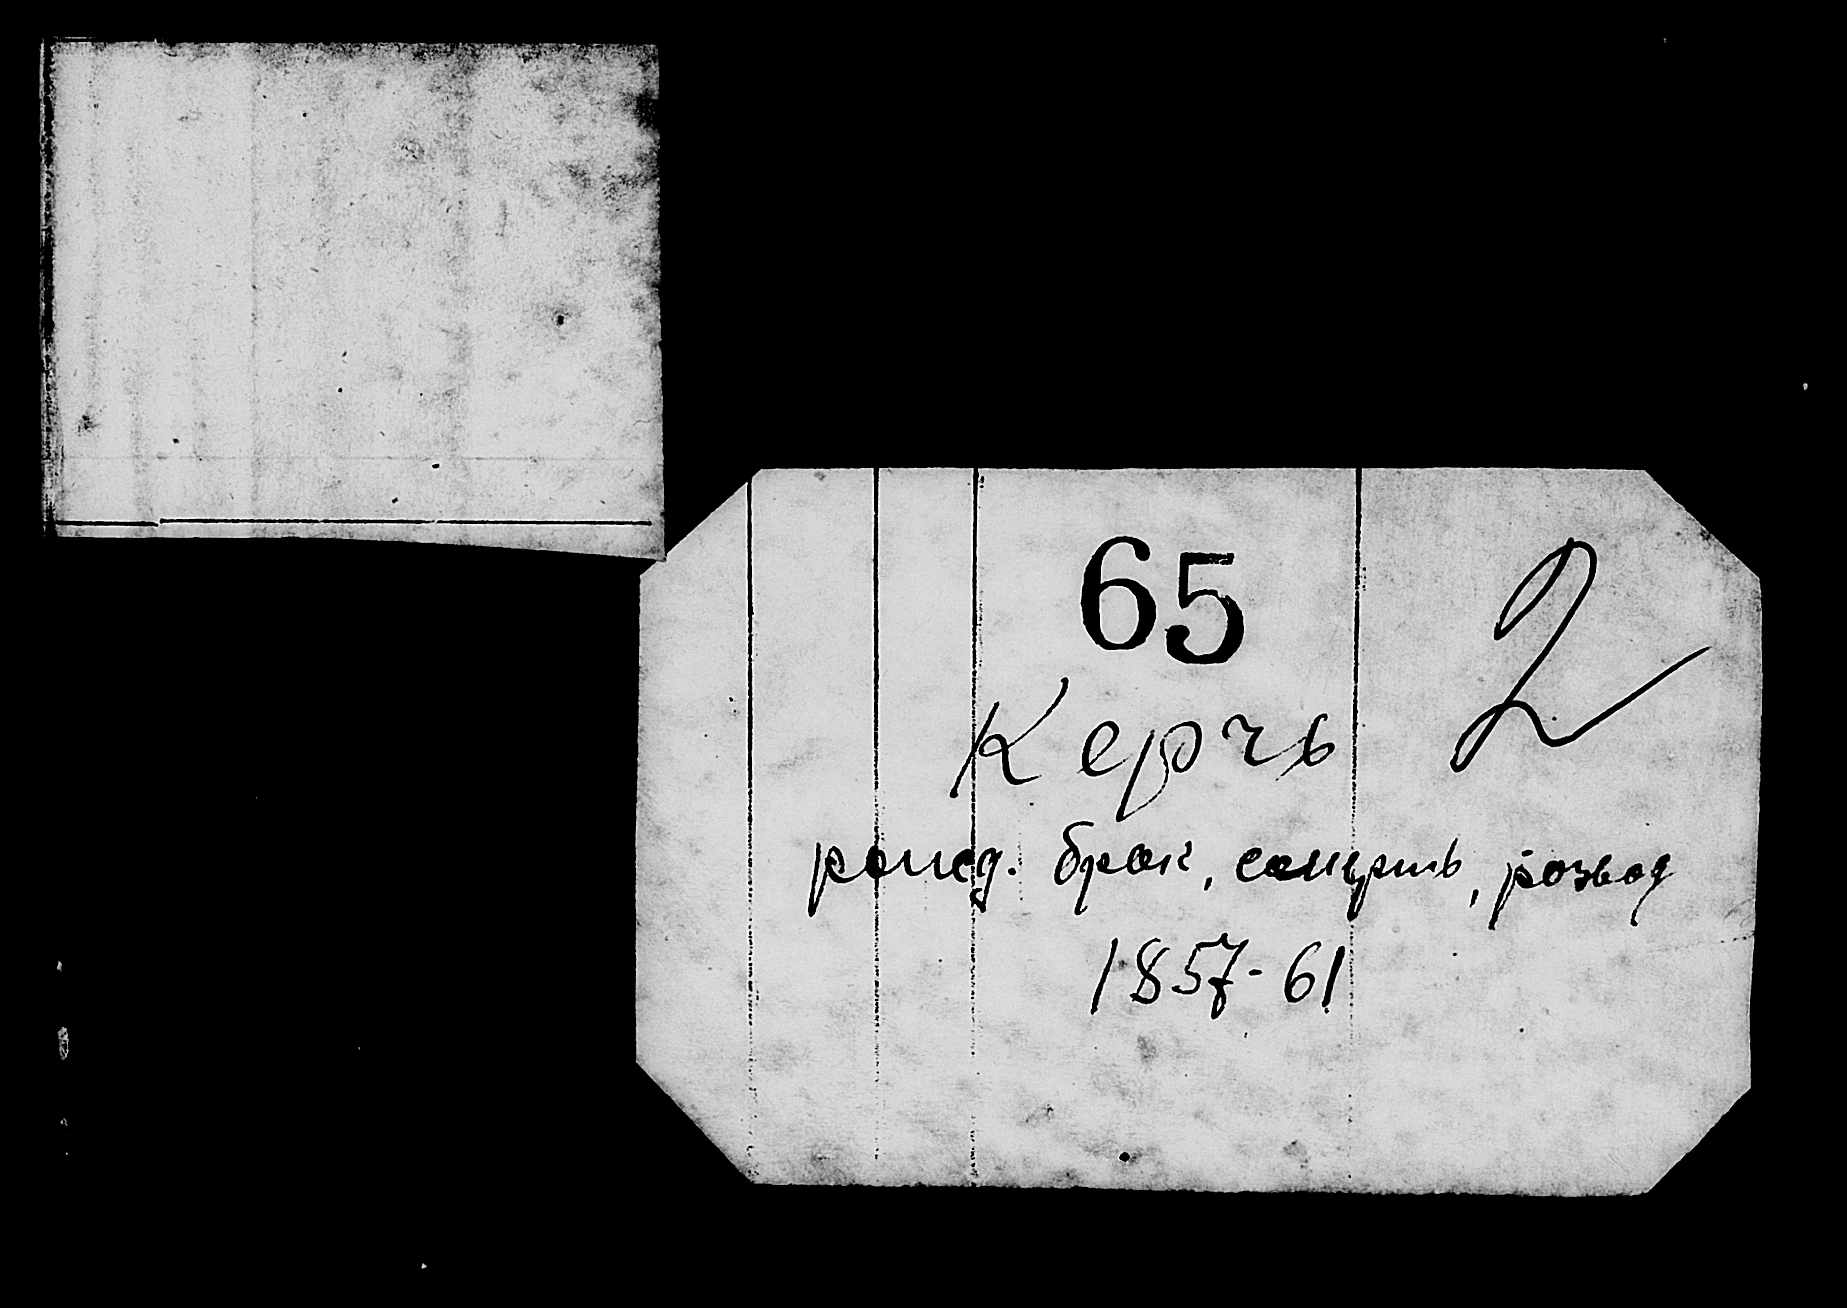 65
2
Керчь
рожд. брак, смерть, развод
1857-61